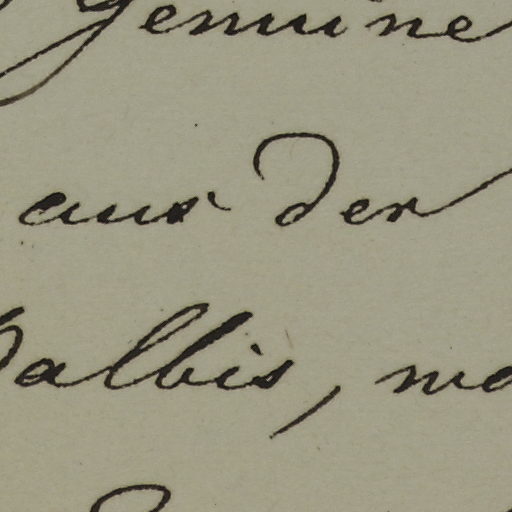 Genuine
aus der
Balbis,